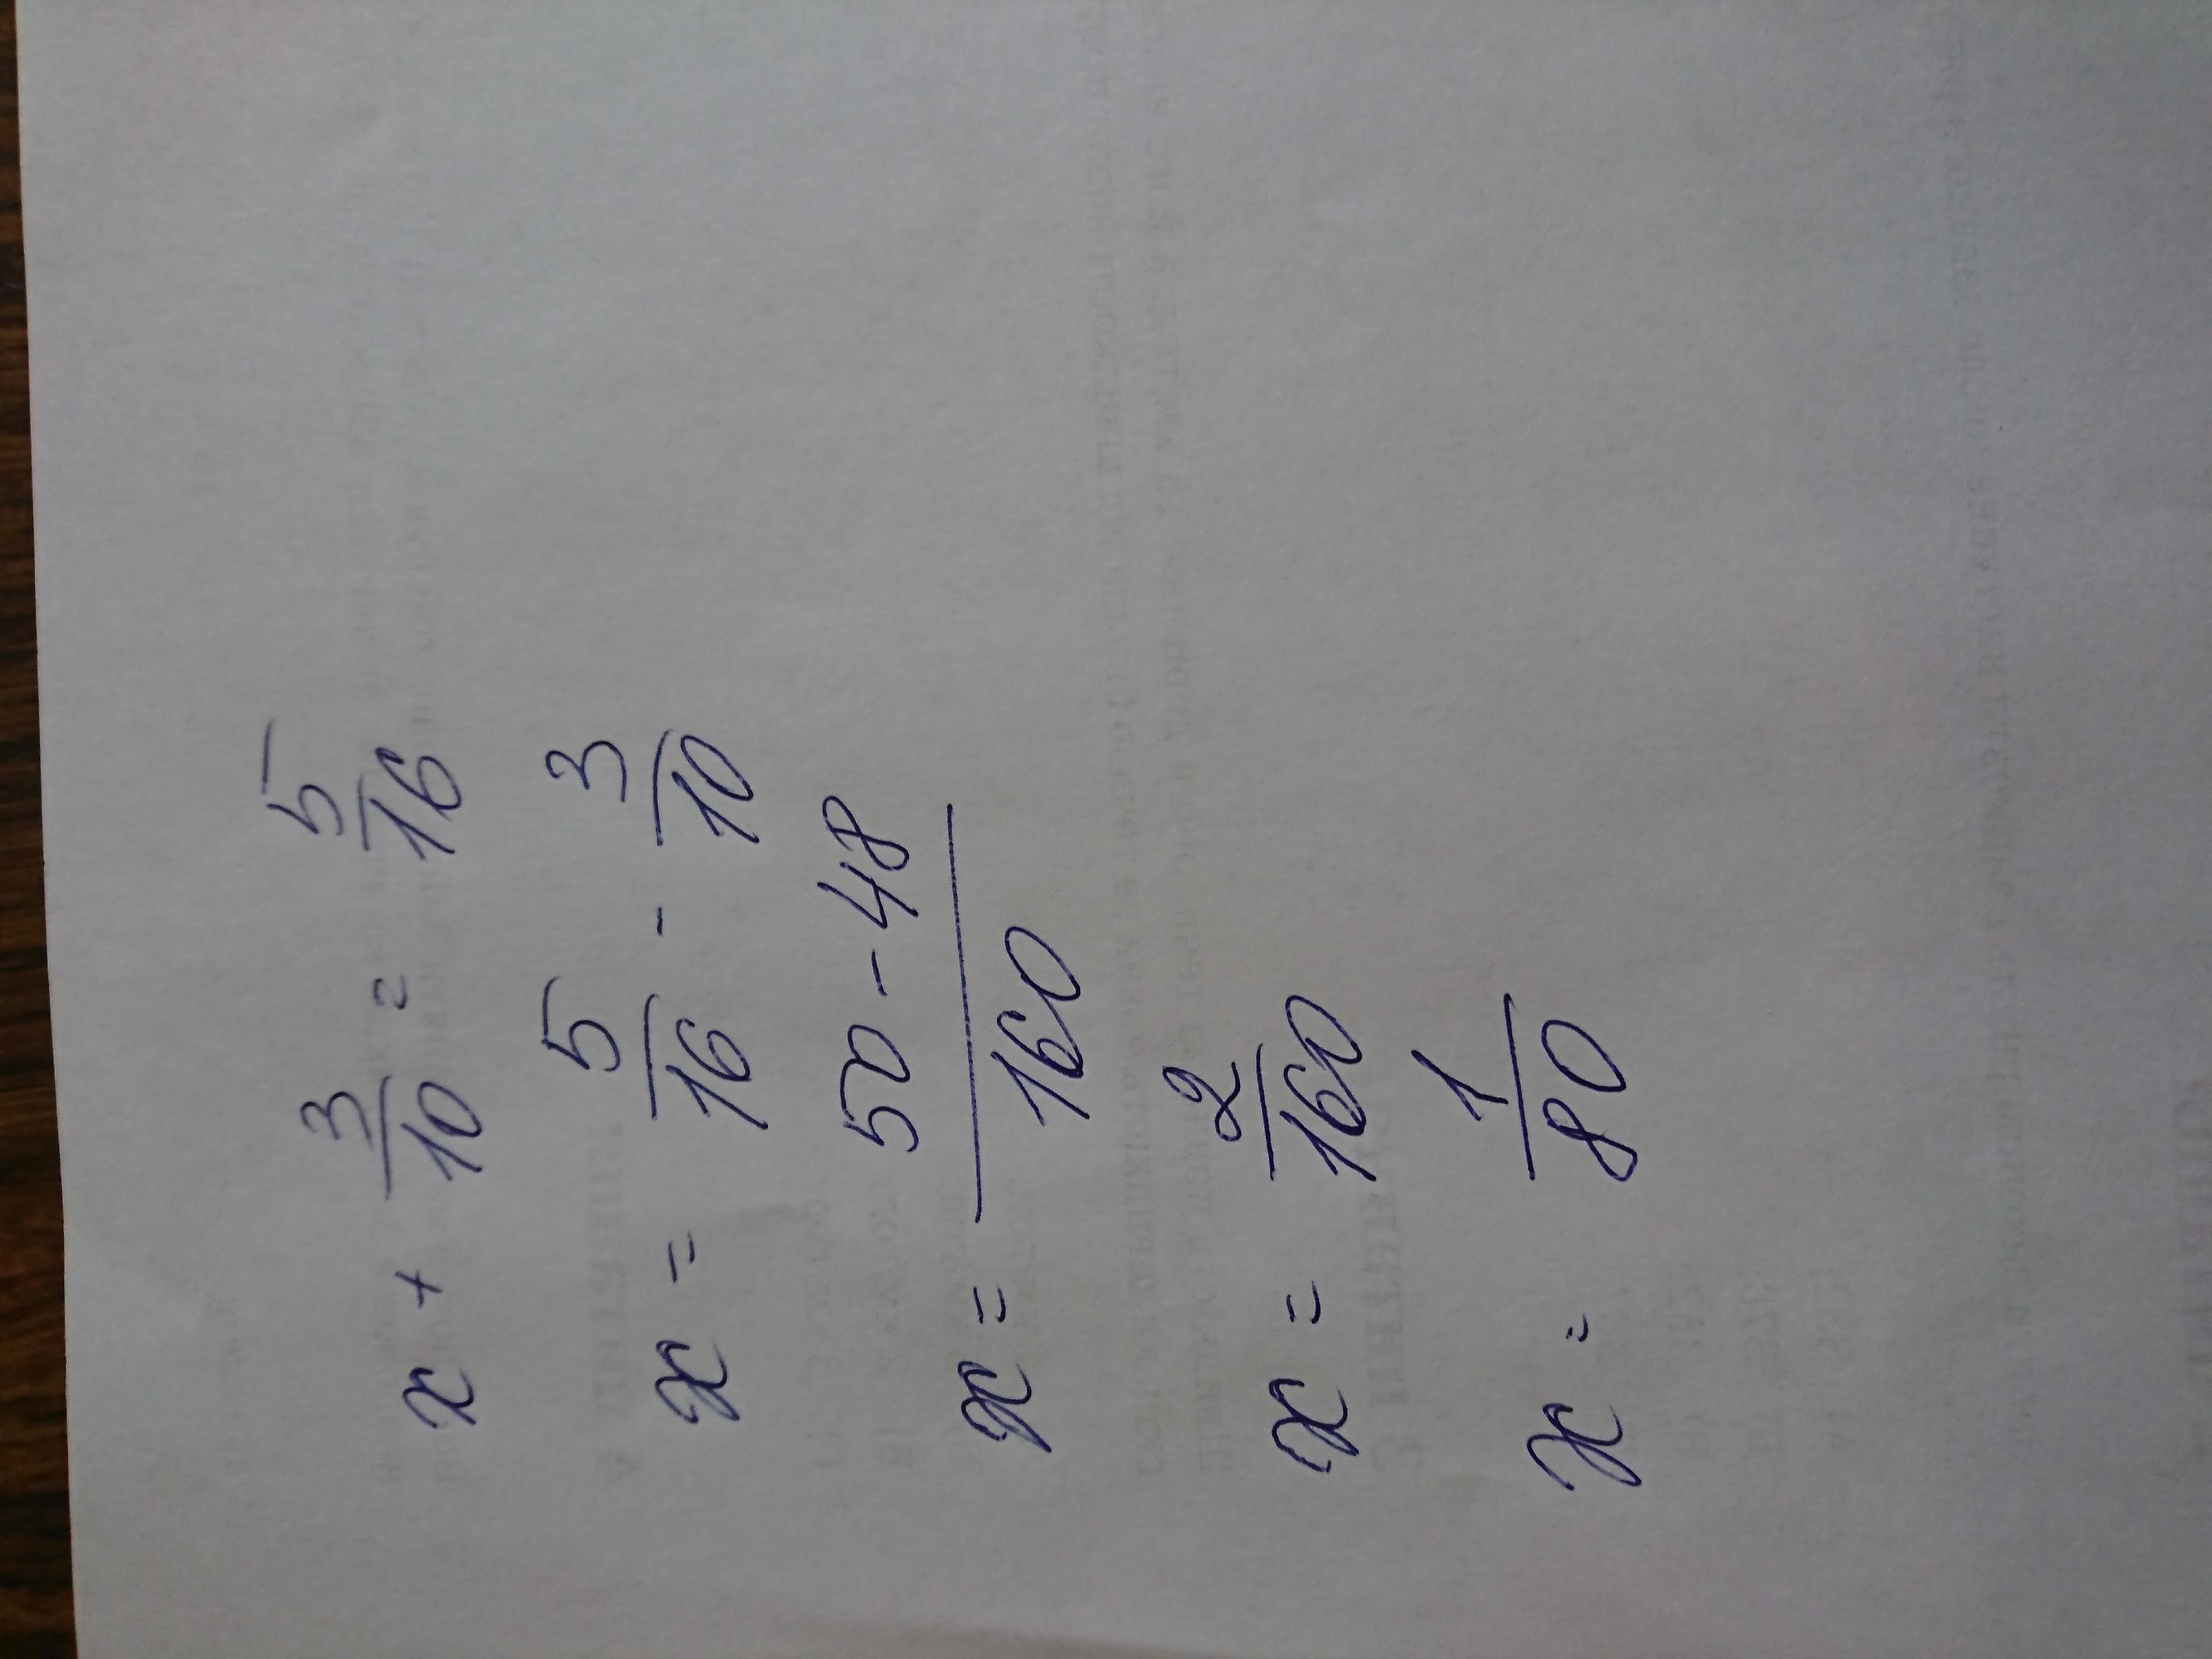 x + 3/10 = 5/16
x = 5/16 - 3/10
x = 50-48/160
x = 2/160
x = 1/80